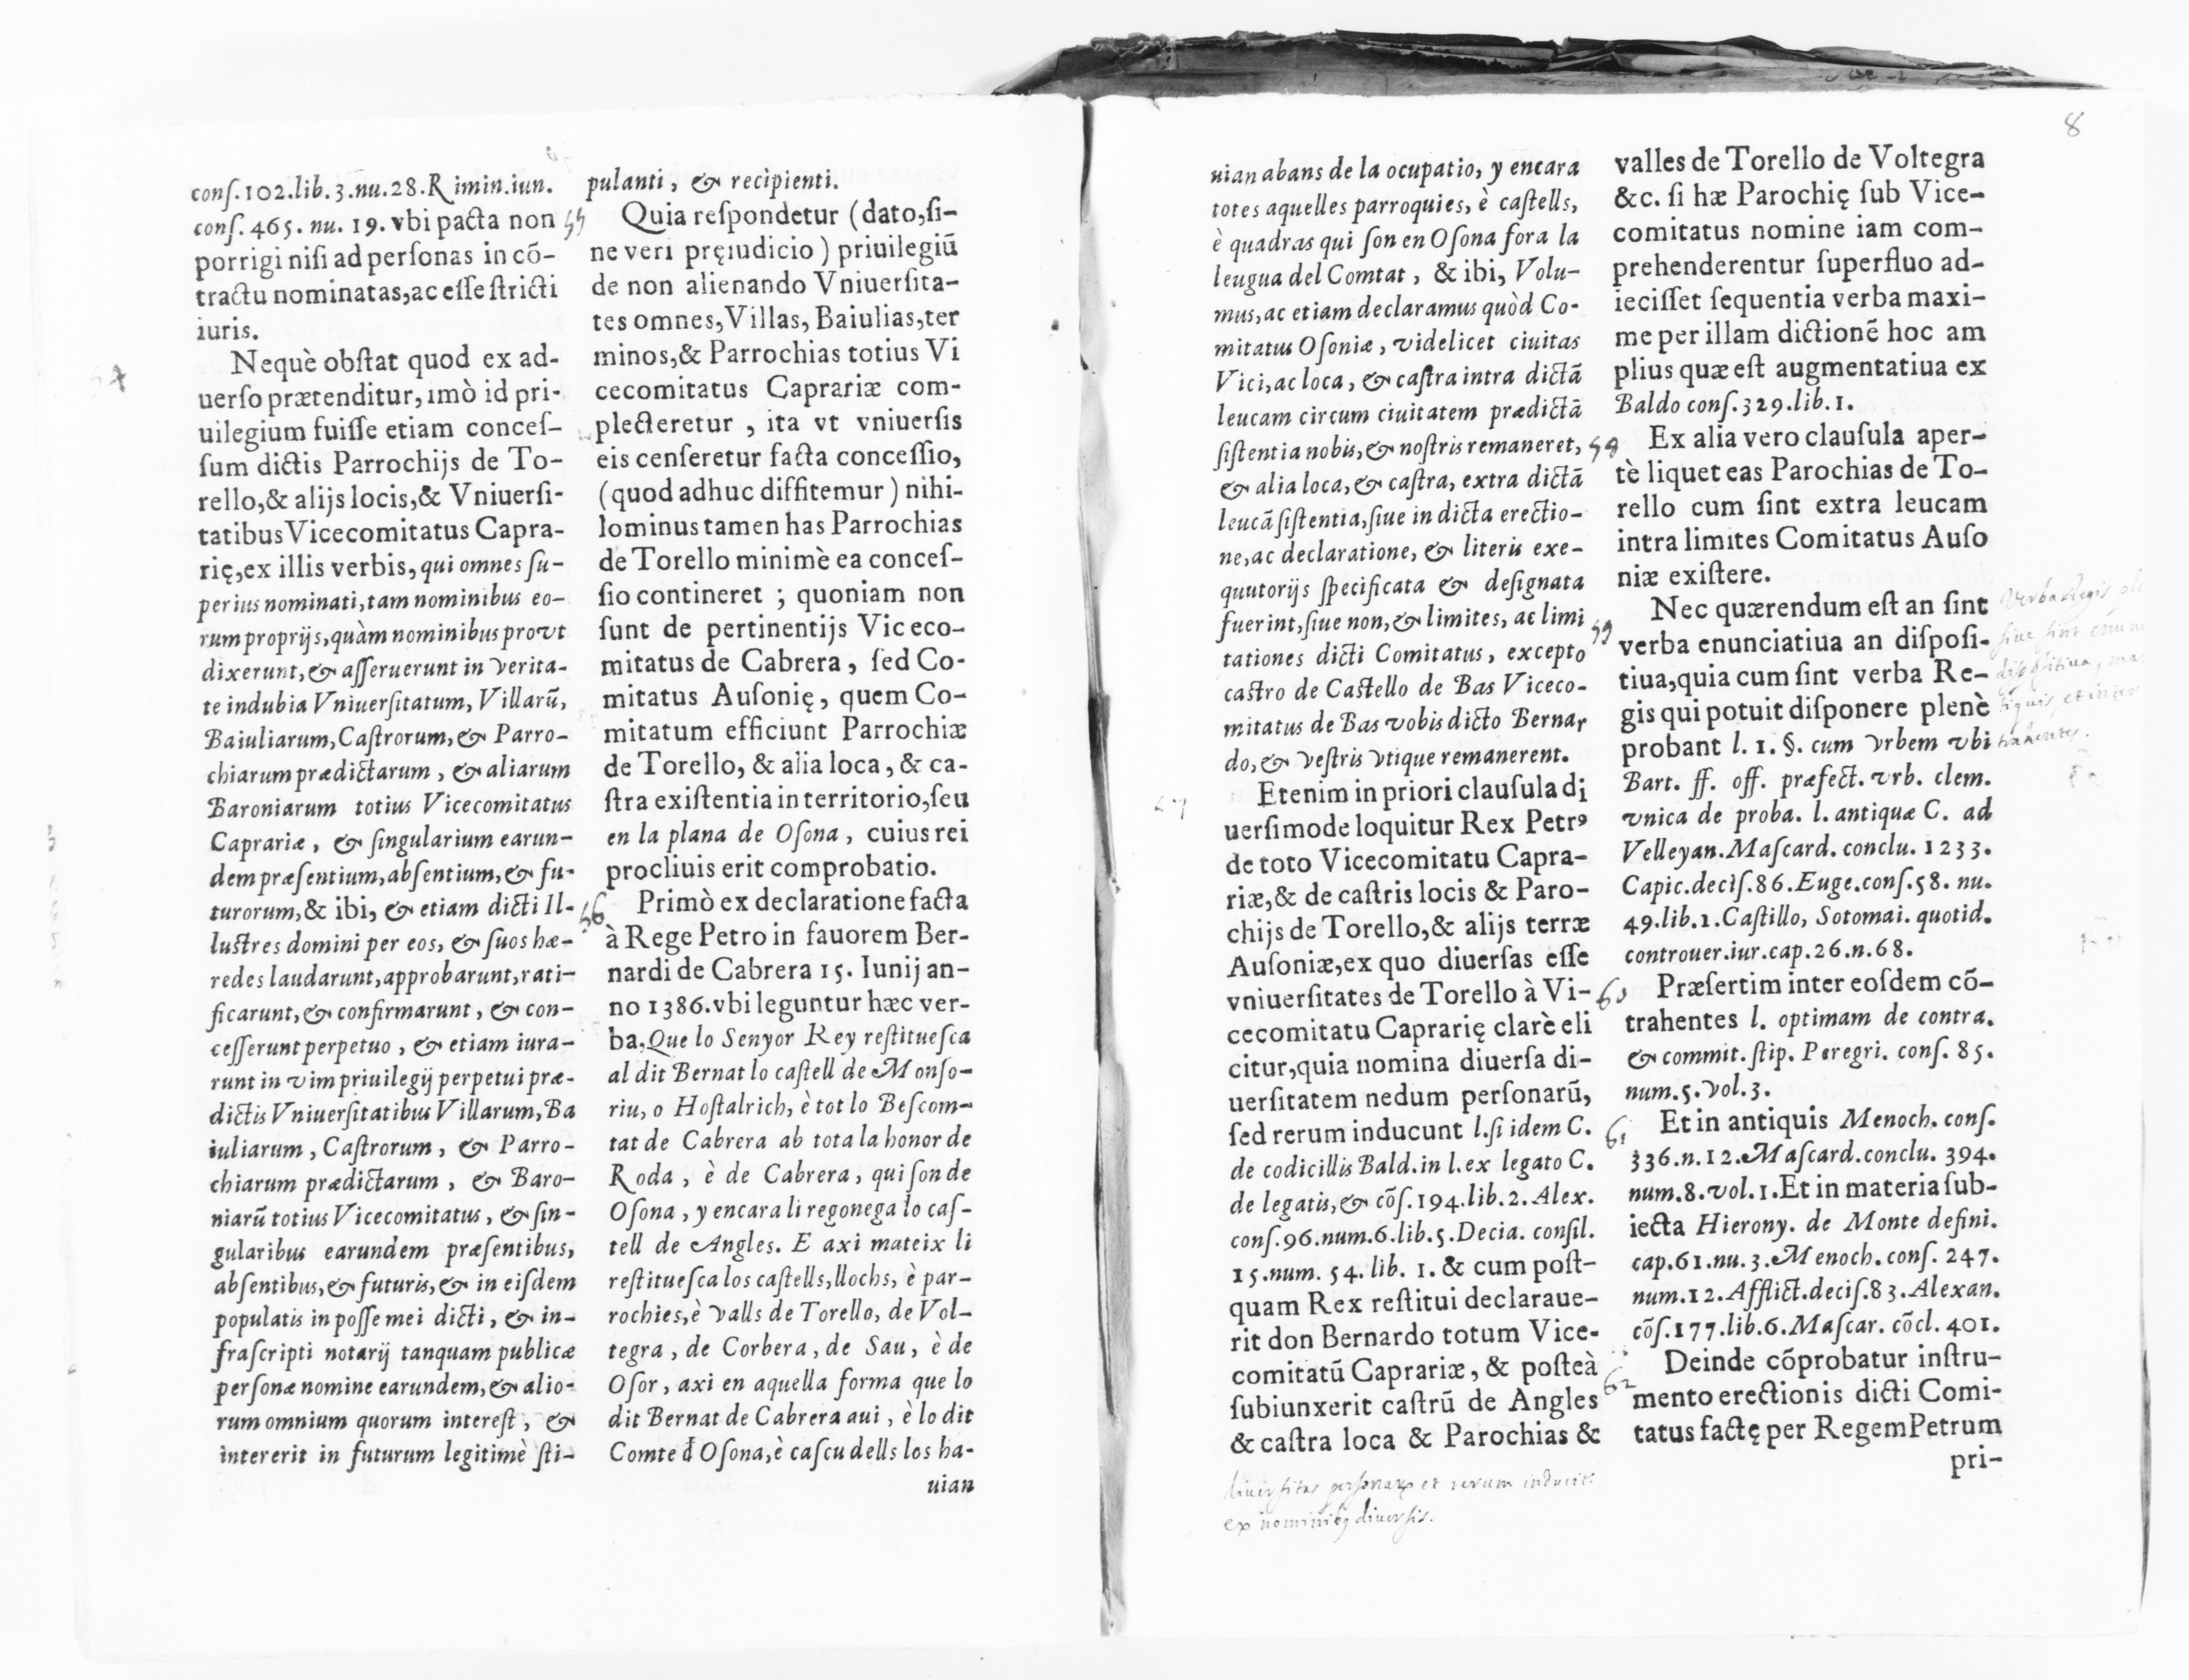 conſ.102.lib.3.nu.28.Rimin.iun.
conſ.465.nu.19.vbi pacta non
porrigi niſi ad perſonas in cõ-
tractu nominatas,ac eſſe ſtricti
iuris.
54
Nequè obſtat quod ex ad-
uerſo prætenditur, imò id pri-
uilegium fuiſſe etiam conceſ-
ſum dictis Parrochijs de To-
rello,& alijs locis,& Vniuerſi-
tatibus Vicecomitatus Capra-
rię,ex illis verbis, qui omnes ſu-
perius nominati,tam nominibus eo-
rum proprijs,quàm nominibus provt
dixerunt,& aſſeruerunt in verita-
te indubia Vniuerſitatum, Villarũ,
Baiuliarum,Caſtrorum,& Parro-
chiarum prædictarum, & aliarum
Baroniarum totius Vicecomitatus
Caprariæ, & ſingularium earun-
dem præſentium,abſentium,& fu-
turorum,& ibi, & etiam dicti Il-
luſtres domini per eos, & ſuos hæ-
redes laudarunt,approbarunt,rati-
ficarunt,& confirmarunt, & con-
ceſſerunt perpetuo, & etiam iura-
runt in vim priuilegij perpetui præ-
dictis Vniuerſitatibus Villarum,Ba
iuliarum, Caſtrorum, & Parro-
chiarum prædictarum, & Baro-
niarũ totius Vicecomitatus, & ſin-
gularibus earundem præſentibus,
abſentibus,& futuris,& in eiſdem
populatis in poſſe mei dicti, & in-
fraſcripti notarij tanquam publicæ
perſonæ nomine earundem,& alio-
rum omnium quorum intereſt, &
intererit in futurum legitimè ſti-
pulanti, & recipienti.
55
Quia reſpondetur (dato,ſi-
ne veri pręiudicio) priuilegiũ
de non alienando Vniuerſita-
tes omnes,Villas, Baiulias,ter
minos,& Parrochias totius Vi
cecomitatus Caprariæ com-
plecteretur, ita vt vniuerſis
eis cenſeretur facta conceſſio,
(quod adhuc diffitemur) nihi-
lominus tamen has Parrochias
de Torello minimè ea conceſ-
ſio contineret; quoniam non
ſunt de pertinentijs Viceco-
mitatus de Cabrera, ſed Co-
mitatus Auſonię, quem Co-
mitatum efficiunt Parrochiæ
de Torello, & alia loca, & ca-
ſtra exiſtentia in territorio,ſeu
en la plana de Oſona, cuius rei
procliuis erit comprobatio.
56
Primò ex declaratione facta
à Rege Petro in fauorem Ber-
nardi de Cabrera 15. Iunij an-
no 1386.vbi leguntur hæc ver-
ba,Que lo Senyor Rey reſtitueſca
al dit Bernat lo caſtell de Monſo-
riu, o Hoſtalrich, è tot lo Beſcom-
tat de Cabrera ab tota la honor de
Roda, è de Cabrera, qui ſon de
Oſona, y encara li regonega lo caſ-
tell de Angles. E axi mateix li
reſtitueſca los caſtells,llochs, è par-
rochies,è valls de Torello, de Vol-
tegra, de Corbera, de Sau, è de
Oſor, axi en aquella forma que lo
dit Bernat de Cabrera aui, è lo dit
Comte đ Oſona,è caſcu dells los ha-
uian
8
uian abans de la ocupatio, y encara
totes aquelles parroquies, è caſtells,
è quadras qui ſon en Oſona fora la
leugua del Comtat, & ibi, Volu-
mus,ac etiam declaramus quòd Co-
mitatus Oſoniæ, videlicet ciuitas
Vici,ac loca, & caſtra intra dictã
leucam circum ciuitatem prædictã
ſiſtentia nobis,& noſtris remaneret,
& alia loca,& caſtra, extra dictã
leucã ſiſtentia,ſiue in dicta erectio-
ne,ac declaratione, & literis exe-
quutorijs ſpecificata & deſignata
fuerint,ſiue non,& limites, ac limi
tationes dicti Comitatus, excepto
caſtro de Caſtello de Bas Viceco-
mitatus de Bas vobis dicto Bernar
do,& veſtris vtique remanerent.
57
Etenim in priori clauſula di
uerſimode loquitur Rex Petrꝰ
de toto Vicecomitatu Capra-
riæ,& de caſtris locis & Paro-
chijs de Torello,& alijs terræ
Auſoniæ,ex quo diuerſas eſſe
vniuerſitates de Torello à Vi-
cecomitatu Caprarię clarè eli
citur,quia nomina diuerſa di-
uerſitatem nedum perſonarũ,
ſed rerum inducunt l.ſi idem C.
de codicillis Bald.in l.ex legato C.
de legatis,& cõſ.194.lib.2.Alex.
conſ.96.num.6.lib.5.Decia. conſil.
15.num. 54. lib. 1. & cum poſt-
quam Rex reſtitui declaraue-
rit don Bernardo totum Vice-
comitatũ Caprariæ, & poſteà
ſubiunxerit caſtrũ de Angles
& caſtra loca & Parochias &
diuersitas personarũ et rerum inducit.
ex nominibꝫ diuersis.
valles de Torello de Voltegra
&c. ſi hæ Parochię ſub Vice-
comitatus nomine iam com-
prehenderentur ſuperfluo ad-
ieciſſet ſequentia verba maxi-
me per illam dictionẽ hoc am
plius quæ eſt augmentatiua ex
Baldo conſ.329.lib.1.
58
Ex alia vero clauſula aper-
tè liquet eas Parochias de To-
rello cum ſint extra leucam
intra limites Comitatus Auſo
niæ exiſtere.
59
Nec quærendum eſt an ſint
verba enunciatiua an diſpoſi-
tiua,quia cum ſint verba Re-
gis qui potuit diſponere plenè
probant l. 1. §. cum vrbem vbi
Bart. ff. off. præfect. vrb. clem.
vnica de proba. l. antiquæ C. ad
Velleyan.Maſcard. conclu. 1233.
Capic.deciſ.86.Euge.conſ.58. nu.
49.lib.1.Caſtillo, Sotomai. quotid.
controuer.iur.cap.26.n.68.
Verba Regis
siue sint
dispositiua,
60
Præſertim inter eoſdem cõ-
trahentes l. optimam de contra.
& commit. ſtip. Peregri. conſ. 85.
num.5.vol.3.
61
Et in antiquis Menoch. conſ.
336.n.12.Maſcard.conclu. 394.
num.8.vol.1.Et in materia ſub-
iecta Hierony. de Monte defini.
cap.61.nu.3.Menoch. conſ. 247.
num.12.Afflict.deciſ.83.Alexan.
cõſ.177.lib.6.Maſcar. cõcl. 401.
62
Deinde cõprobatur inſtru-
mento erectionis dicti Comi-
tatus factę per Regem Petrum
pri-